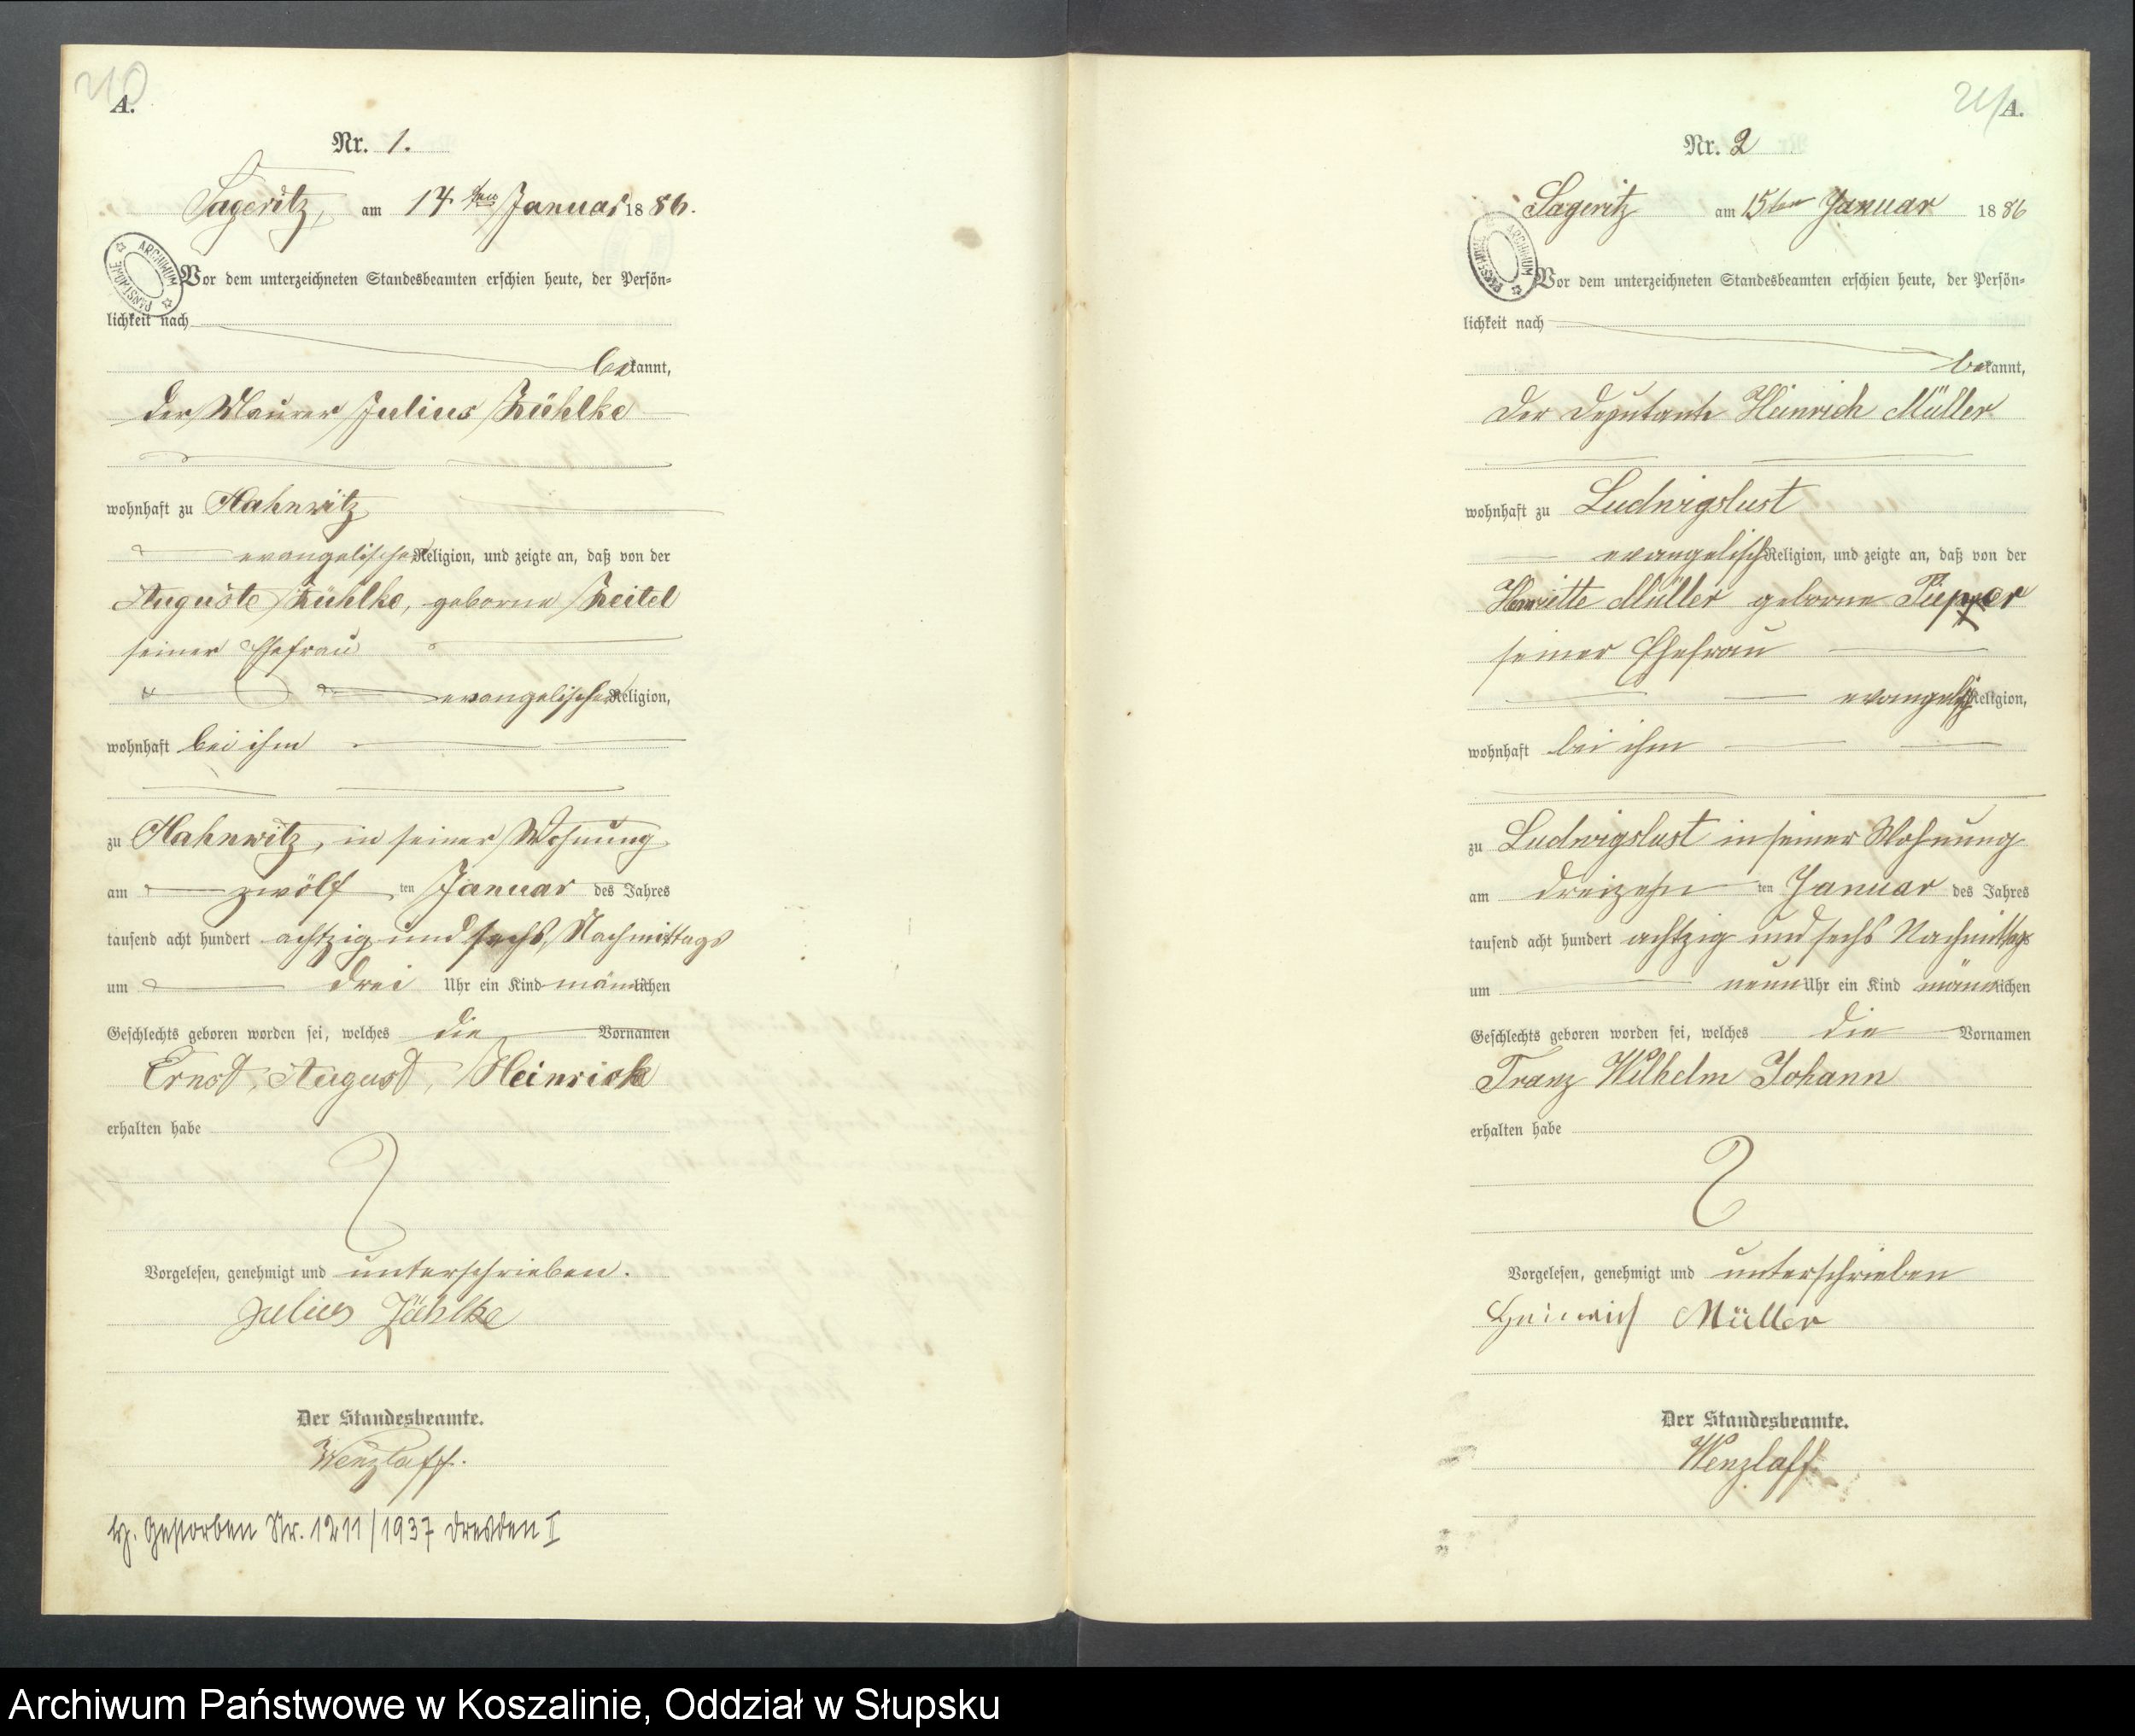 210
A.
Nr. 1.
Sageritz, am 14ten Januar 1886.
Vor dem unterzeichneten Standesbeamten erschien heute, der Persön-
lichkeit nach
bekannt,
der Maurer Julius Zühlke
wohnhaft zu Hahnwitz
evangelischer Religion, und zeigte an, daß von der
Auguste Zühlke, geborne Zeitel
seiner Ehefrau
evangelischer Religion,
wohnhaft bei ihm
zu Hahnwitz, in seiner Wohnung
am zwölf ten Januar des Jahres
tausend acht hundert achtzig und sechs, Nachmittags
um drei Uhr ein Kind männlichen
Geschlechts geboren worden sei, welches die Vornamen
Ernst, August, Heinrich
erhalten habe
Vorgelesen, genehmigt und unterschrieben.
Julius Zühlke
Der Standesbeamte.
Wenzlaff.
Gestorben Nr. 1211/1937 Dresden I
ARCHIWUM PAŃSTWOWE
211
A.
Nr. 2
Sageritz am 15ten Januar 1886
Vor dem unterzeichneten Standesbeamten erschien heute, der Persön-
lichkeit nach
bekannt,
Der Deputante Heinrich Müller
wohnhaft zu Ludwigslust
evangelisch Religion, und zeigte an, daß von der
Henriette Müller geborne Piepper
seiner Ehefrau
evangelisch Religion,
wohnhaft bei ihm
zu Ludwigslust in seiner Wohnung
am dreizehn ten Januar des Jahres
tausend acht hundert achtzig und sechs Nachmittags
um neun Uhr ein Kind männlichen
Geschlechts geboren worden sei, welches die Vornamen
Franz Wilhelm Johann
erhalten habe
Vorgelesen, genehmigt und unterschrieben
Heinrich Müller
Der Standesbeamte.
Wenzlaff
ARCHIWUM PAŃSTWOWE
Archiwum Państwowe w Koszalinie, Oddział w Słupsku